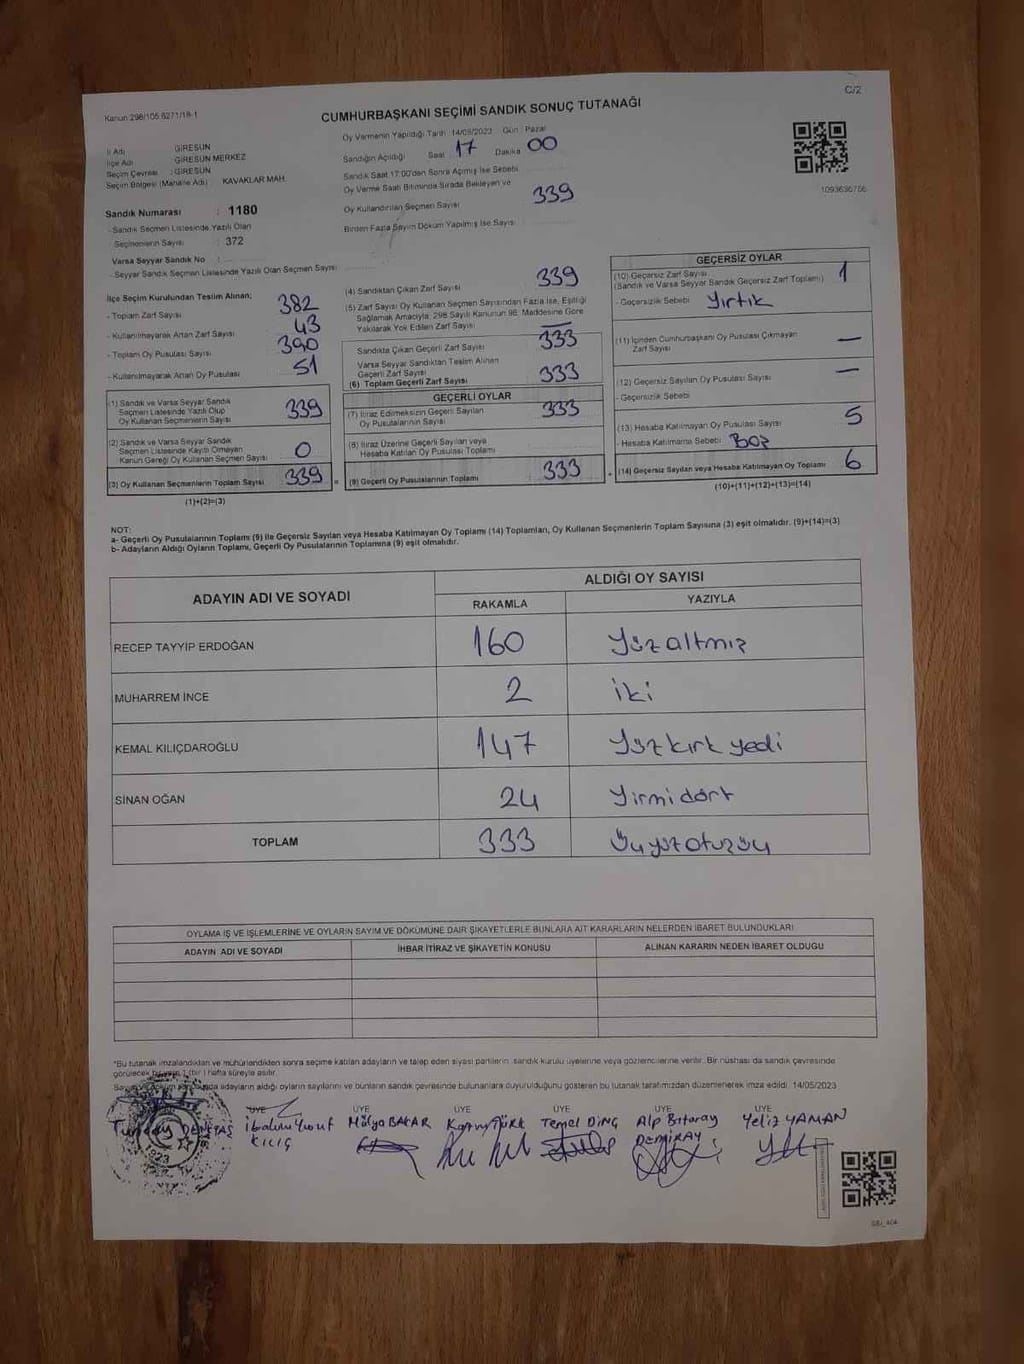 C/2
Kanun 298/105 6271/18-1
CUMHURBAŞKANI SEÇİMİ SANDIK SONUÇ TUTANAĞI
Oy Vermenin Yapıldığı Tarih 14/05/2023 Gün Pazar
İl Adı GİRESUN
İlçe Adı GİRESUN MERKEZ
Seçim Çevresi : GİRESUN
Seçim Bölgesi (Mahalle Adı) KAVAKLAR MAH.
Sandığın Açıldığı Saat 17 Dakika 00
Sandık Saat 17:00'den Sonra Açılmış İse Sebebi
Oy Verme Saati Bitiminde Sırada Bekleyen ve
Oy Kullandırılan Seçmen Sayısı 339
Birden Fazla Sayım Döküm Yapılmış İse Sayısı
1093636766
Sandık Numarası : 1180
- Sandık Seçmen Listesinde Yazılı Olan
Seçmenlerin Sayısı : 372
Varsa Seyyar Sandık No :
- Seyyar Sandık Seçmen Listesinde Yazılı Olan Seçmen Sayısı
İlçe Seçim Kurulundan Teslim Alınan;
- Toplam Zarf Sayısı 382
- Kullanılmayarak Artan Zarf Sayısı 43
- Toplam Oy Pusulası Sayısı 390
- Kullanılmayarak Artan Oy Pusulası 51
(1) Sandık ve Varsa Seyyar Sandık
Seçmen Listesinde Yazılı Olup
Oy Kullanan Seçmenlerin Sayısı 339
(2) Sandık ve Varsa Seyyar Sandık
Seçmen Listesinde Kayıtlı Olmayan
Kanun Gereği Oy Kullanan Seçmen Sayısı 0
(3) Oy Kullanan Seçmenlerin Toplam Sayısı 339 =
(1)+(2)=(3)
(4) Sandıktan Çıkan Zarf Sayısı 339
(5) Zarf Sayısı Oy Kullanan Seçmen Sayısından Fazla İse, Eşitliği
Sağlamak Amacıyla, 298 Sayılı Kanunun 98. Maddesine Göre
Yakılarak Yok Edilen Zarf Sayısı —
Sandıkta Çıkan Geçerli Zarf Sayısı 333
Varsa Seyyar Sandıktan Teslim Alınan
Geçerli Zarf Sayısı
(6) Toplam Geçerli Zarf Sayısı 333
GEÇERLİ OYLAR
(7) İtiraz Edilmeksizin Geçerli Sayılan
Oy Pusulalarının Sayısı 333
(8) İtiraz Üzerine Geçerli Sayılan veya
Hesaba Katılan Oy Pusulası Toplamı
(9) Geçerli Oy Pusulalarının Toplamı 333 +
GEÇERSİZ OYLAR
(10) Geçersiz Zarf Sayısı 1
(Sandık ve Varsa Seyyar Sandık Geçersiz Zarf Toplamı)
- Geçersizlik Sebebi Yırtık
(11) İçinden Cumhurbaşkanı Oy Pusulası Çıkmayan
Zarf Sayısı —
(12) Geçersiz Sayılan Oy Pusulası Sayısı —
- Geçersizlik Sebebi
(13) Hesaba Katılmayan Oy Pusulası Sayısı 5
- Hesaba Katılmama Sebebi Boş
(14) Geçersiz Sayılan veya Hesaba Katılmayan Oy Toplamı 6
(10)+(11)+(12)+(13)=(14)
NOT:
a- Geçerli Oy Pusulalarının Toplamı (9) ile Geçersiz Sayılan veya Hesaba Katılmayan Oy Toplamı (14) Toplamları, Oy Kullanan Seçmenlerin Toplam Sayısına (3) eşit olmalıdır. (9)+(14)=(3)
b- Adayların Aldığı Oyların Toplamı, Geçerli Oy Pusulalarının Toplamına (9) eşit olmalıdır.
ADAYIN ADI VE SOYADI
ALDIĞI OY SAYISI
RAKAMLA YAZIYLA
RECEP TAYYİP ERDOĞAN 160 Yüzaltmış
MUHARREM İNCE 2 iki
KEMAL KILIÇDAROĞLU 147 Yüzkırk yedi
SİNAN OĞAN 24 Yirmidört
TOPLAM 333 Üçyüzotuzüç
OYLAMA İŞ VE İŞLEMLERİNE VE OYLARIN SAYIM VE DÖKÜMÜNE DAİR ŞİKAYETLERLE BUNLARA AİT KARARLARIN NELERDEN İBARET BULUNDUKLARI
ADAYIN ADI VE SOYADI İHBAR İTİRAZ VE ŞİKAYETİN KONUSU ALINAN KARARIN NEDEN İBARET OLDUĞU
*Bu tutanak imzalandıktan ve mühürlendikten sonra seçime katılan adayların ve talep eden siyasi partilerin sandık kurulu üyelerine veya gözlemcilerine verilir. Bir nüshası da sandık çevresinde
görülecek bir yere 1 (bir) hafta süreyle asılır.
adayların aldığı oyların sayılarını ve bunların sandık çevresinde bulunanlara duyurulduğunu gösteren bu tutanak tarafımızdan düzenlenerek imza edildi. 14/05/2023
ÜYE ÜYE ÜYE ÜYE ÜYE ÜYE
Tuncay DENKTAŞ İbrahim Yusuf KILIÇ Hülya BAKAR Türk Temel DİNÇ Alp Bitaray DEMİRAY Yeliz YAMAN